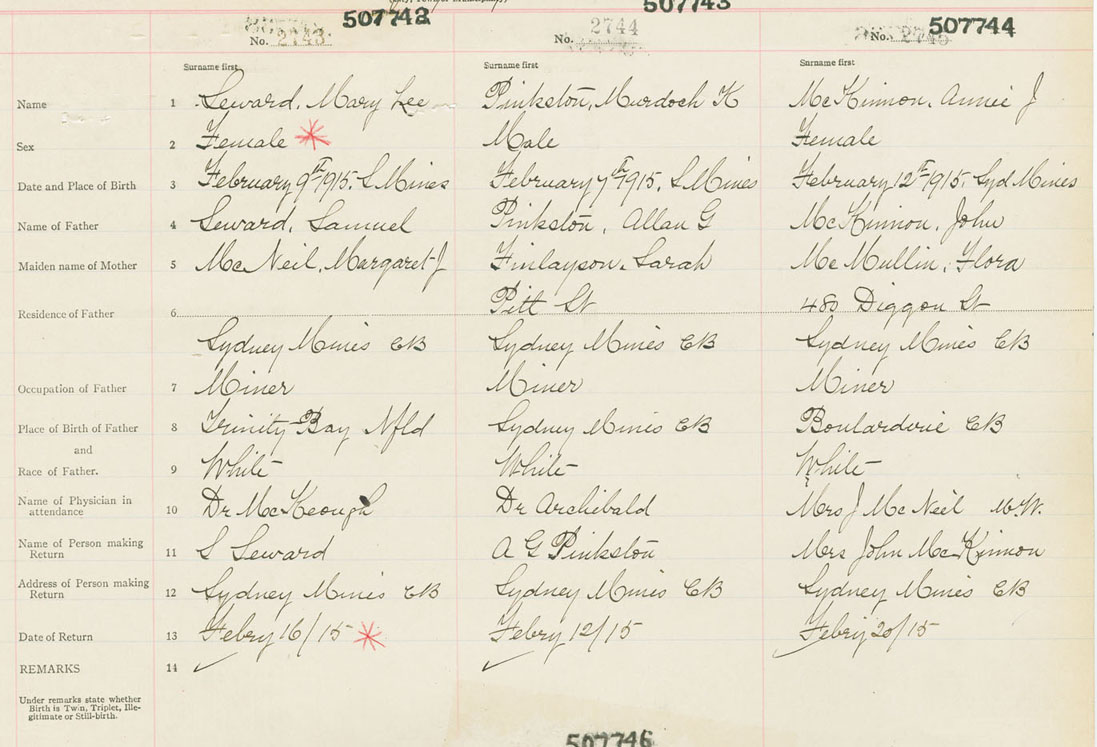 507743 507743
2744 507744
No. 2743 No. No. 2745
Surname first Surname first Surname first
Name 1 Seward, Mary Lee Pinkston, Murdoch K McKinnon, Annie J
Sex 2 Female * Male Female
Date and Place of Birth 3 February 9th 1915. S Mines February 7th 1915, S Mines February 12th 1915, Syd Mines
Name of Father 4 Seward, Samuel Pinkston, Allan G McKinnon, John
Maiden name of Mother 5 McNeil, Margaret J Finlayson, Sarah McMullin, Flora
Residence of Father 6 Pitt St 480 Diggon St
Sydney Mines CB Sydney Mines CB Sydney Mines CB
Occupation of Father 7 Miner Miner Miner
Place of Birth of Father 8 Trinity Bay Nfld Sydney Mines CB Boulardrie CB
and
Race of Father. 9 White White White
Name of Physician in
attendance 10 Dr McKeough Dr Archibald Mrs J McNeil M.W.
Name of Person making
Return 11 S Seward A G Pinkston Mrs John McKinnon
Address of Person making
Return 12 Sydney Mines CB Sydney Mines CB Sydney Mines CB
Date of Return 13 Febry 16/15 * Febry 12/15 Febry 20/15
REMARKS 14
Under remarks state whether
Birth is Twin, Triplet, Ille-
gitimate or Still-birth.
507746